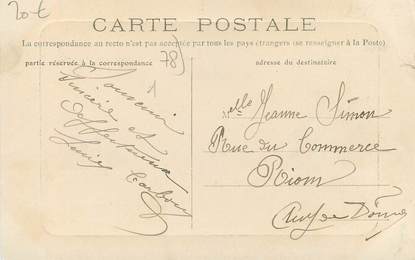 20 €
CARTE POSTALE
La correspondance au recto n'est pas acceptée par tous les pays étrangers (se renseigner à la Poste)
partie réservée à la correspondance
78)
adresse du destinataire
1
Souvenir
sincère et
affectueux
Melle Jeanne Simon
Rue du Commerce
Riom
Puy de Dôme